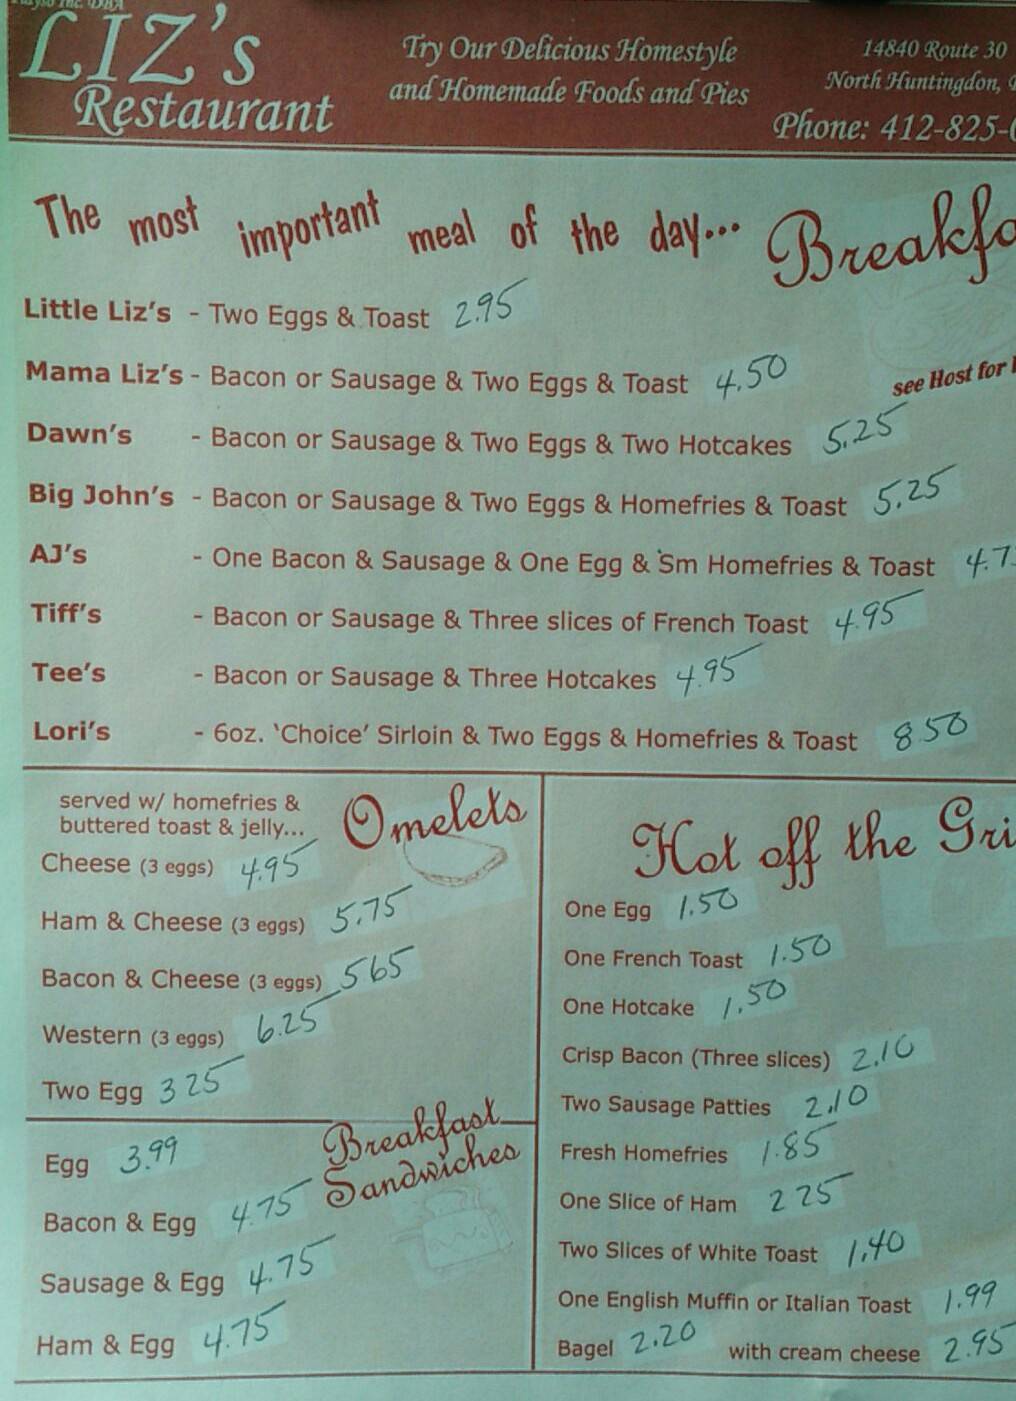 LIZ's
Restaurant
Try Our Delicious Homestyle
and Homemade Foods and Pies
14840 Route 30
North Huntingdon,
Phone: 412-825-
The most important meal of the day...
Little Liz's - Two Eggs & Toast 2.95
Mama Liz's - Bacon or Sausage & Two Eggs & Toast 4.50
see Host for
Dawn's - Bacon or Sausage & Two Eggs & Two Hotcakes 5.25
Big John's - Bacon or Sausage & Two Eggs & Homefries & Toast 5.25
AJ's - One Bacon & Sausage & One Egg & Sm Homefries & Toast
Tiff's - Bacon or Sausage & Three slices of French Toast 4.95
Tee's - Bacon or Sausage & Three Hotcakes 4.95
Lori's - 6oz. 'Choice' Sirloin & Two Eggs & Homefries & Toast 8.50
served w/ homefries &
buttered toast & jelly...
Omelets
Cheese (3 eggs) 4.95
Ham & Cheese (3 eggs) 5.75
Bacon & Cheese (3 eggs) 565
Western (3 eggs) 6.25
Two Egg 3 25
Breakfast
Sandwiches
Egg 3.99
Bacon & Egg 4.75
Sausage & Egg 4.75
Ham & Egg 4.75
Hot off the
One Egg 1.50
One French Toast 1.50
One Hotcake 1.50
Crisp Bacon (Three slices) 2.10
Two Sausage Patties 2.10
Fresh Homefries 1.85
One Slice of Ham 2 25
Two Slices of White Toast 1.40
One English Muffin or Italian Toast 1.99
Bagel 2.20 with cream cheese 2.95